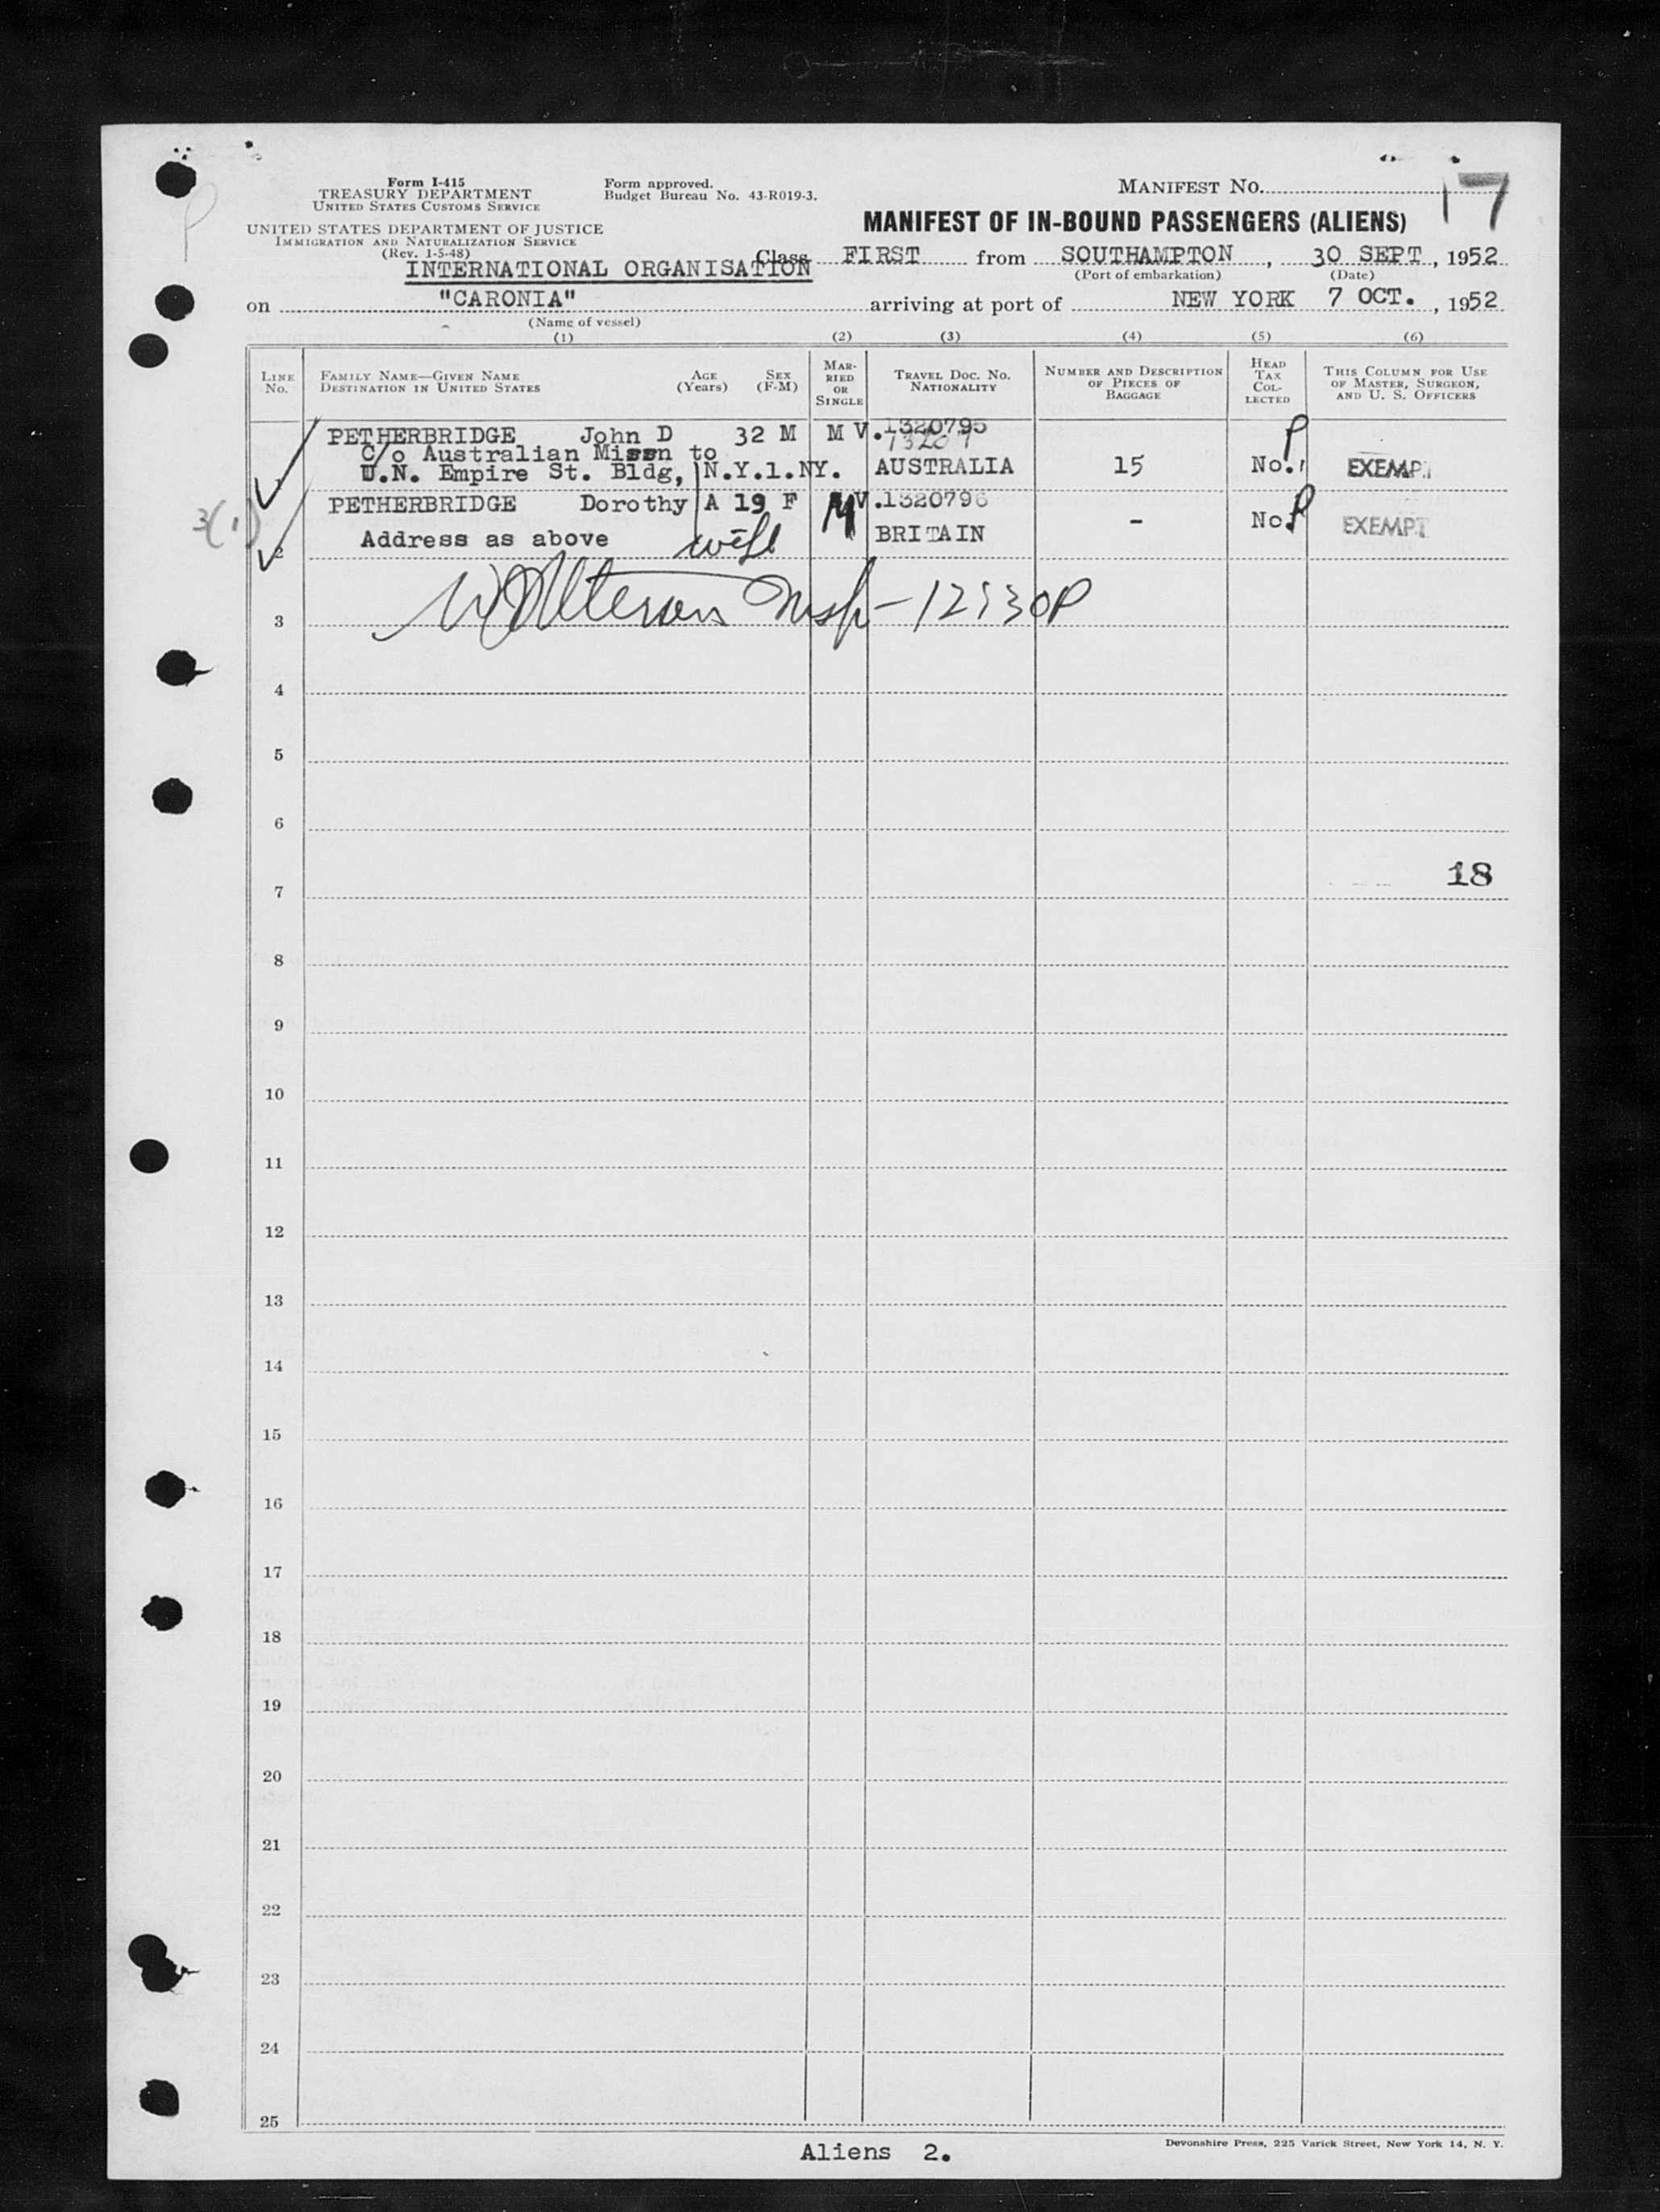 Form I-415
TREASURY DEPARTMENT
UNITED STATES CUSTOMS SERVICE
UNITED STATES DEPARTMENT OF JUSTICE
IMMIGRATION AND NATURALIZATION SERVICE
(Rev. 1-5-48)
Form approved.
Budget Bureau No. 43-R019-3.
MANIFEST NO. 17
MANIFEST OF IN-BOUND PASSENGERS (ALIENS)
INTERNATIONAL ORGANISATION
Class FIRST from SOUTHAMPTON, 30 SEPT, 1952
(Port of embarkation) (Date)
on "CARONIA" arriving at port of NEW YORK 7 OCT., 1952
(Name of vessel)
(1) (2) (3) (4) (5) (6)
LINE NO.
FAMILY NAME—GIVEN NAME DESTINATION IN UNITED STATES
AGE (Years)
SEX (F-M)
MARRIED OR SINGLE
TRAVEL DOC. NO. NATIONALITY
NUMBER AND DESCRIPTION OF PIECES OF BAGGAGE
HEAD TAX COLLECTED
THIS COLUMN FOR USE OF MASTER, SURGEON, AND U. S. OFFICERS
PETHERBRIDGE John D 32 M M V.1320795 P
C/o Australian Missn to
U.N. Empire St. Bldg, N.Y.1.NY. AUSTRALIA 15 No. EXEMPT
3(1)
PETHERBRIDGE Dorothy A 19 F M V.1320796 P
2 Address as above wife BRITAIN - No. EXEMPT
3 Insp - 12:30P
4
5
6
18
7
8
9
10
11
12
13
14
15
16
17
18
19
20
21
22
23
24
25
Aliens 2.
Devonshire Press, 225 Varick Street, New York 14, N. Y.